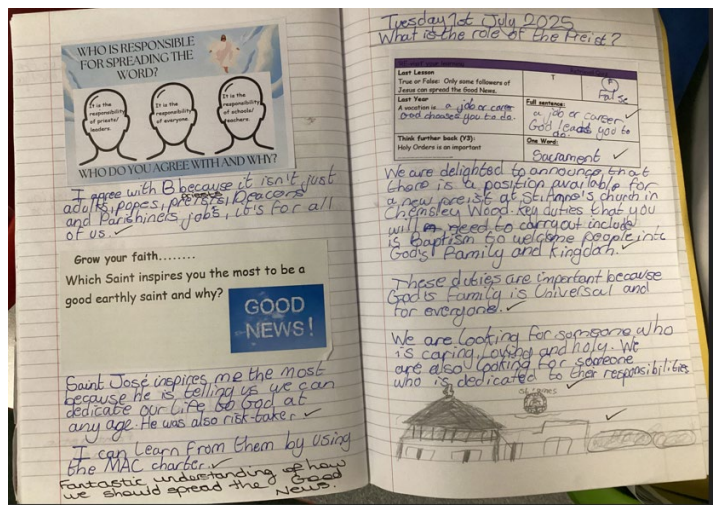 WHO IS RESPONSIBLE
FOR SPREADING THE
WORD?
It is the
responsibility
of priests/
leaders.
It is the
responsibility
of everyone.
It is the
responsibility
of schools/
teachers.
WHO DO YOU AGREE WITH AND WHY?
I agree with B because it isn't just
adults, popes, preists, Deacons
and Parishiners jobs, it's for all
of us.
Grow your faith........
Which Saint inspires you the most to be a
good earthly saint and why?
GOOD
NEWS!
Saint José inspires me the most
because he is telling us we can
dedicate our life to God at
any age. He was also risk-taker.
I can learn from them by using
the MAC charter.
Fantastic understanding of how
we should spread the Good
News.
Tuesday 1st July 2025
What is the role of the Preist?
Last Lesson
True or False: Only some followers of
Jesus can spread the Good News.
T
F
False
Last Year
A vocation is a job or carer
God chooses you to do.
Full sentence:
a job or career
God leads you to
do.
Think further back (Y3):
Holy Orders is an important
One Word:
Sacrament
We are delighted to announce that
there is a position available for
a new preist at St.Anne's church in
Chemsley Wood. Key duties that you
will need to carry out include
is Baptism to welcome people into
God's Family and Kingdah.
These duties are important because
God's family is Universal and
for everyone.
We are looking for someone who
is caring, loving and holy. We
are also looking for someone
who is dedicated to their responsibilities